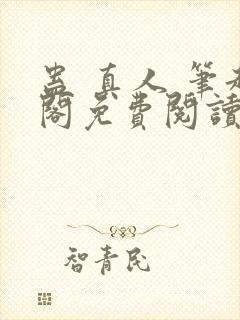 蛊 真人 筆趣
閣免費閱讀
智青民